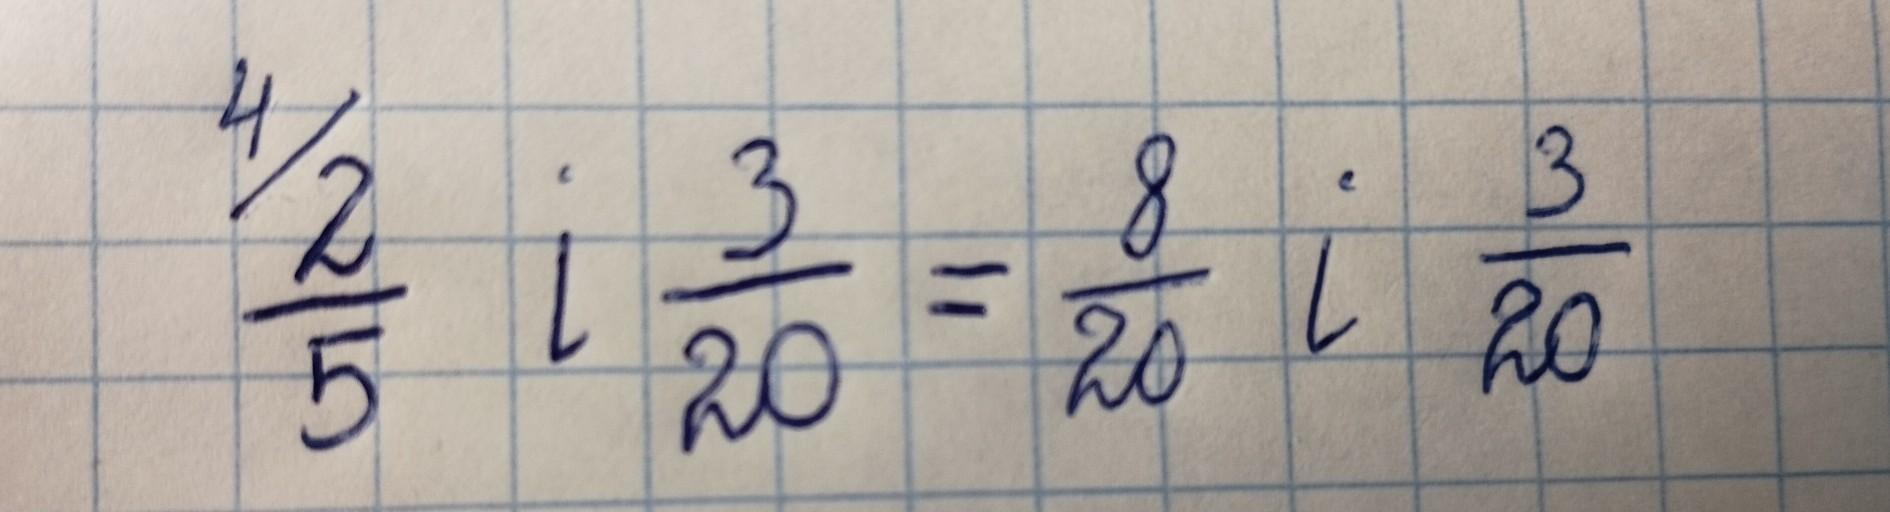 4/ 2/5 і 3/20 = 8/20 і 3/20